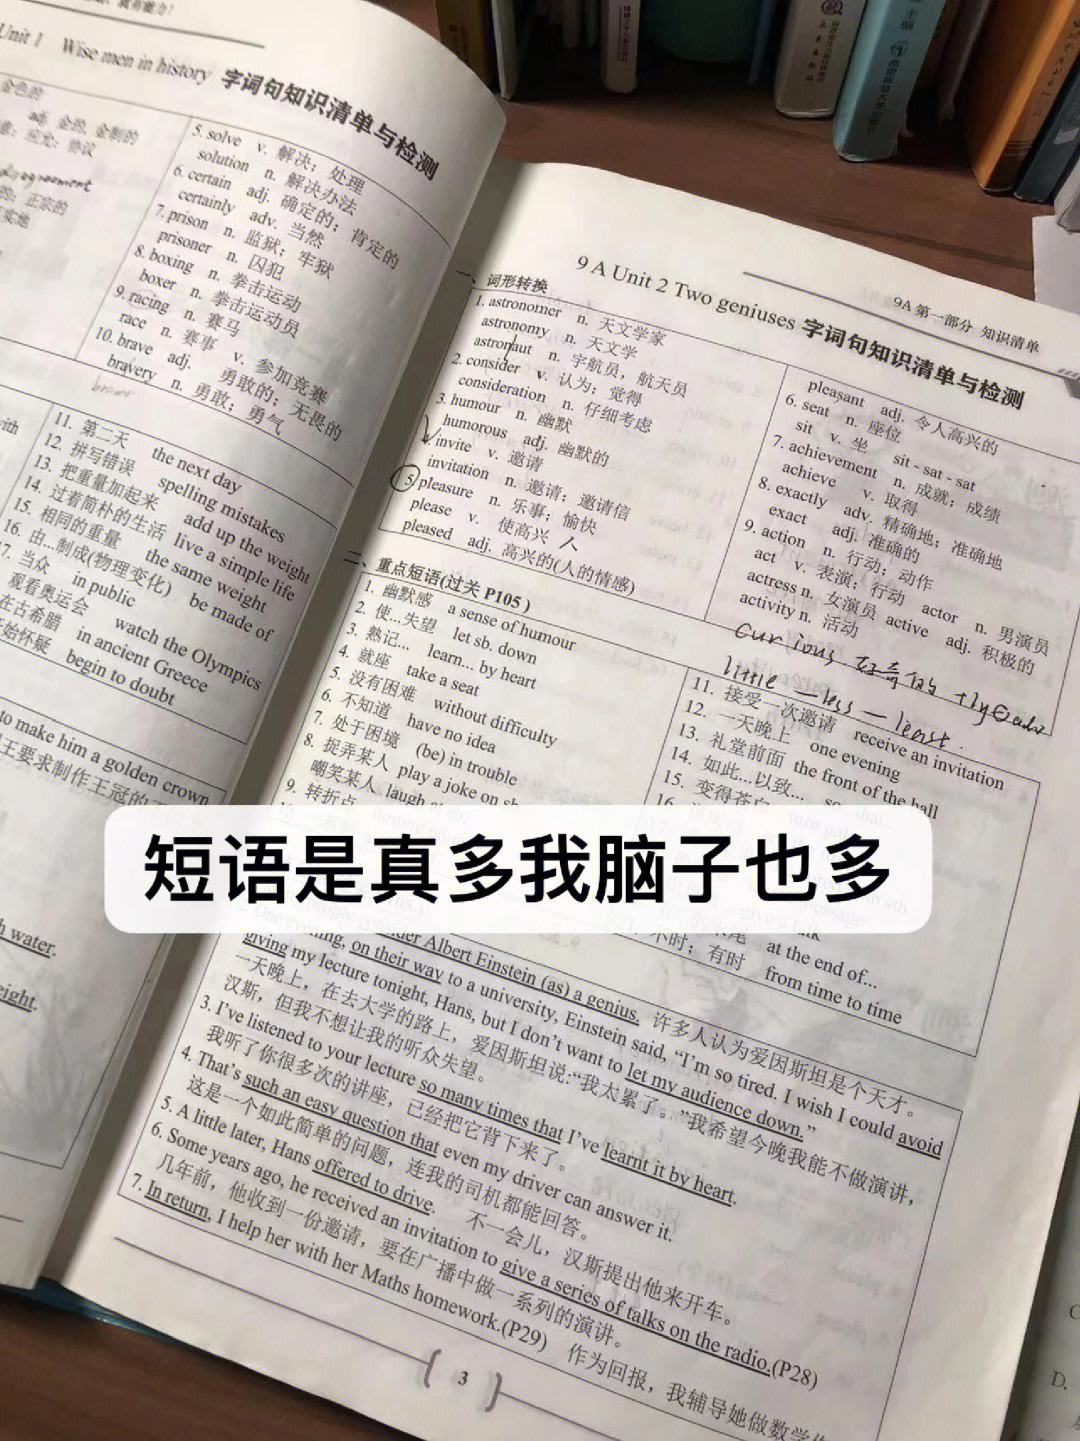 Unit 1 Wise men in history 字词句知识清单与检测
金色的
adj. 金的, 金制的
5. solve v. 解决；处理
solution n. 解决办法
6. certain adj. 确定的；肯定的
certainly adv. 当然
7. prison n. 监狱；牢狱
prisoner n. 囚犯
8. boxing n. 拳击运动
boxer n. 拳击运动员
9. racing n. 赛马
race n. 赛事 v. 参加竞赛
10. brave adj. 勇敢的；无畏的
bravery n. 勇敢；勇气
11. 第二天 the next day
12. 拼写错误 spelling mistakes
13. 把重量加起来 add up the weight
14. 过着简朴的生活 live a simple life
15. 相同的重量 the same weight
16. 由...制成(物理变化) be made of
17. 当众 in public
观看奥运会 watch the Olympics
在古希腊 in ancient Greece
开始怀疑 begin to doubt
to make him a golden crown
王要求制作王冠的
h water.
eight.
9A 第一部分 知识清单
9 A Unit 2 Two geniuses 字词句知识清单与检测
一、词形转换
1. astronomer n. 天文学家
astronomy n. 天文学
astronaut n. 宇航员，航天员
2. consider v. 认为；觉得
consideration n. 仔细考虑
3. humour n. 幽默
humorous adj. 幽默的
invite v. 邀请
invitation n. 邀请；邀请信
5 pleasure n. 乐事；愉快
please v. 使高兴 人
pleased adj. 高兴的(人的情感)
pleasant adj. 令人高兴的
6. seat n. 座位
sit v. 坐 sit - sat - sat
7. achievement n. 成就；成绩
achieve v. 取得
8. exactly adv. 精确地；准确地
exact adj. 准确的
9. action n. 行动；动作
act v. 表演；行动 actor n. 男演员
actress n. 女演员 active adj. 积极的
activity n. 活动
curious 好奇的 +ly
little — less — least.
二、重点短语(过关 P105)
1. 幽默感 a sense of humour
2. 使...失望 let sb. down
3. 熟记... learn... by heart
4. 就座 take a seat
5. 没有困难 without difficulty
6. 不知道 have no idea
7. 处于困境 (be) in trouble
8. 捉弄某人 play a joke on
嘲笑某人 laugh
9. 转折点
11. 接受一次邀请 receive an invitation
12. 一天晚上 one evening
13. 礼堂前面 the front of the hall
14. 如此...以致...
15. 变得苍白
16.
短语是真多我脑子也多
at the end of...
不时；有时 from time to time
consider Albert Einstein (as) a genius. 许多人认为爱因斯坦是个天才。
One evening, on their way to a university, Einstein said, “I'm so tired. I wish I could avoid
giving my lecture tonight, Hans, but I don't want to let my audience down.”
一天晚上，在去大学的路上，爱因斯坦说:“我太累了。”我希望今晚我能不做演讲，
汉斯，但我不想让我的听众失望。
3. I've listened to your lecture so many times that I've learnt it by heart.
我听了你很多次的讲座，已经把它背下来了。
4. That's such an easy question that even my driver can answer it.
这是一个如此简单的问题，连我的司机都能回答。
5. A little later, Hans offered to drive. 不一会儿，汉斯提出他来开车。
6. Some years ago, he received an invitation to give a series of talks on the radio.(P28)
几年前，他收到一份邀请，要在广播中做一系列的演讲。
7. In return, I help her with her Maths homework.(P29) 作为回报，我辅导她做数学
3
D.